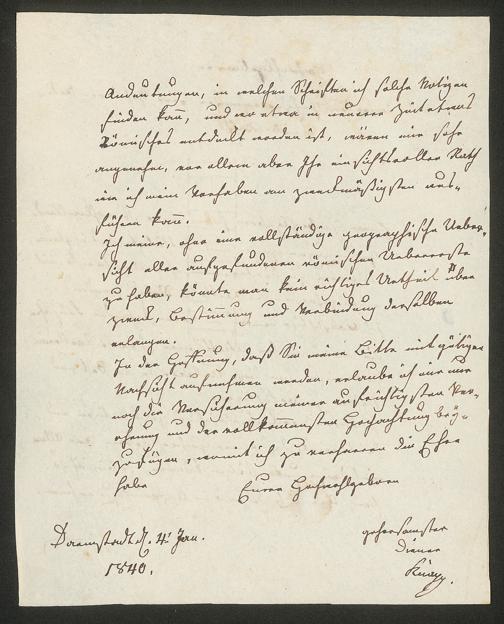 Andeutungen, in welchen Schriften ich solche Notizen
finden kann, und wo etwa in neuerer Zeit etwas
Römisches entdeckt worden ist, wären mir sehr
angenehm, vor allem aber Ihr einsichtsvoller Rath
wie ich mein Vorhaben am zweckmäßigsten aus-
führen kann.
Ich meine, ohne eine vollständige geographische Ueber-
sicht aller aufgefundenen römischen Ueberreste
zu haben, könnte man kein richtiges Urtheil über
Zweck, Bestimmung und Verbindung derselben
erlangen.
In der Hoffnung, daß Sie meine Bitte mit gütiger
Nachsicht aufnehmen werden, erlaube ich mir nur
noch die Versicherung meiner aufrichtigsten Ver-
ehrung und der vollkommensten Hochachtung bey-
zufügen, womit ich zu verharren die Ehre
habe
Euer Hochwohlgeboren
Darmstadt d. 4 Jan.
1840.
gehorsamster
Diener
Knapp.